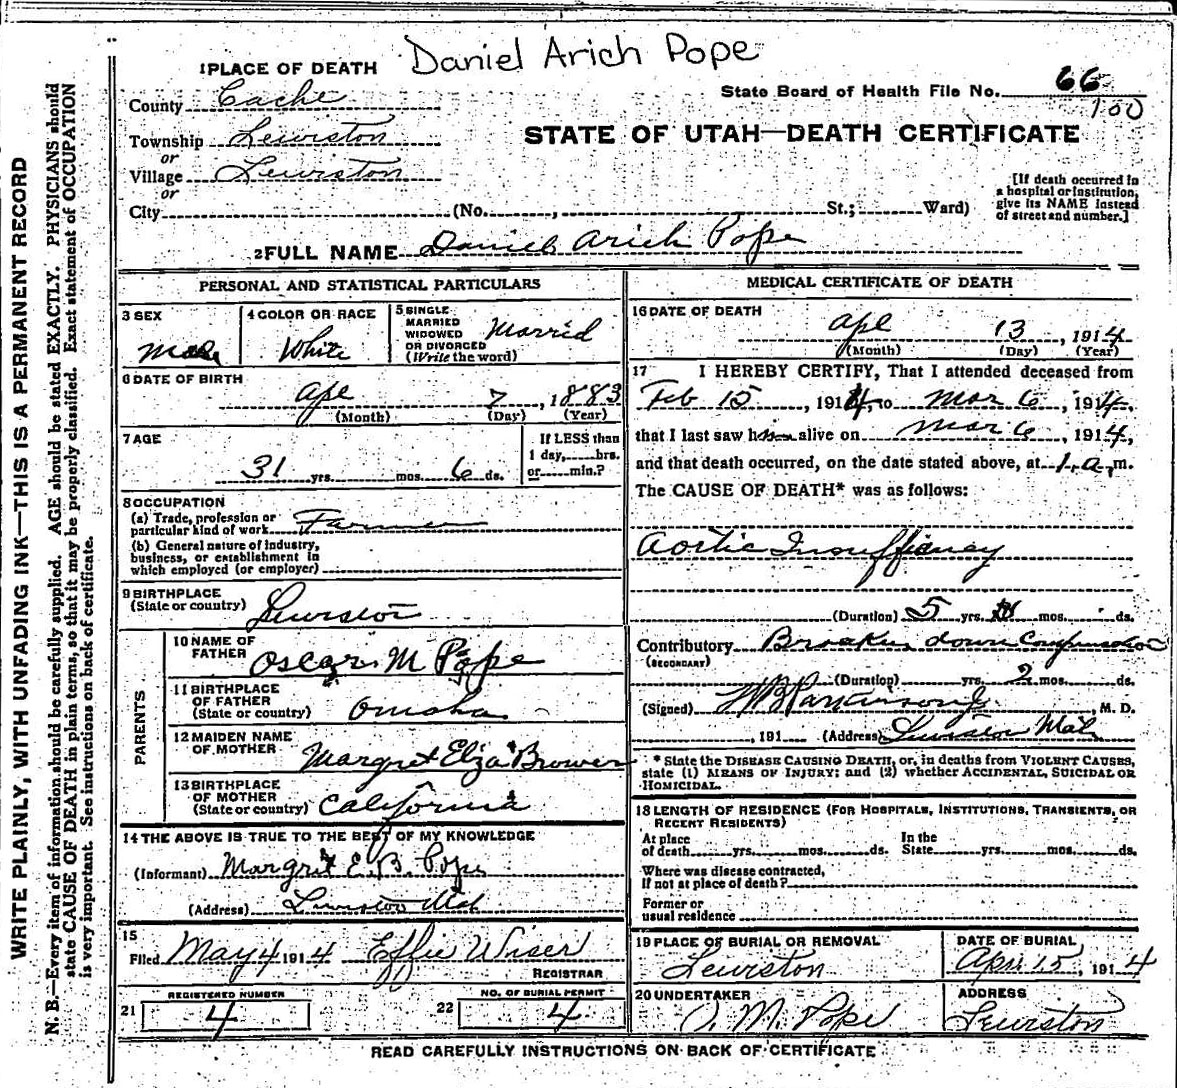 Daniel Arich Pope
1 PLACE OF DEATH
County Cache
Township Lewiston
or
Village Lewiston
or
City (No. , St.; Ward)
State Board of Health File No. 66
100
STATE OF UTAH—DEATH CERTIFICATE
[If death occurred in
a hospital or institution,
give its NAME instead
of street and number.]
2 FULL NAME Daniel Arich Pope
PERSONAL AND STATISTICAL PARTICULARS
3 SEX
Male
4 COLOR OR RACE
White
5 SINGLE
MARRIED
WIDOWED
OR DIVORCED
(Write the word)
Married
6 DATE OF BIRTH
Apl 7, 1883
(Month) (Day) (Year)
7 AGE
31 yrs. mos. 6 ds.
If LESS than
1 day, hrs.
or min.?
8 OCCUPATION
(a) Trade, profession or
particular kind of work Farmer
(b) General nature of industry,
business, or establishment in
which employed (or employer)
9 BIRTHPLACE
(State or country) Lewiston
PARENTS
10 NAME OF
FATHER Oscar M Pope
11 BIRTHPLACE
OF FATHER
(State or country) Omaha
12 MAIDEN NAME
OF MOTHER Margret Eliza Brower
13 BIRTHPLACE
OF MOTHER
(State or country) California
14 THE ABOVE IS TRUE TO THE BEST OF MY KNOWLEDGE
(Informant) Margret E. B. Pope
(Address) Lewiston Utah
15
Filed May 4 1914 Effie Wiser
REGISTRAR
21 REGISTERED NUMBER
4
22 NO. OF BURIAL PERMIT
4
MEDICAL CERTIFICATE OF DEATH
16 DATE OF DEATH
Apl 13, 1914
(Month) (Day) (Year)
17 I HEREBY CERTIFY, That I attended deceased from
Feb 15, 1914, to Mar 6, 1914,
that I last saw him alive on Mar 6, 1914,
and that death occurred, on the date stated above, at 1 a.m.
The CAUSE OF DEATH* was as follows:
Aortic Insufficiency
(Duration) 5 yrs. mos. ds.
Contributory Broaken down Compensation
(SECONDARY)
(Duration) yrs. 2 mos. ds.
(Signed) W B Parkinson Jr, M. D.
, 191 (Address) Lewiston Utah
* State the DISEASE CAUSING DEATH, or, in deaths from VIOLENT CAUSES,
state (1) MEANS OF INJURY; and (2) whether ACCIDENTAL, SUICIDAL OR
HOMICIDAL.
18 LENGTH OF RESIDENCE (FOR HOSPITALS, INSTITUTIONS, TRANSIENTS, OR
RECENT RESIDENTS)
At place
of death yrs. mos. ds.
In the
State yrs. mos. ds.
Where was disease contracted,
If not at place of death?
Former or
usual residence
19 PLACE OF BURIAL OR REMOVAL
Lewiston
DATE OF BURIAL
Apr. 15, 1914
20 UNDERTAKER
O. M. Pope
ADDRESS
Lewiston
READ CAREFULLY INSTRUCTIONS ON BACK OF CERTIFICATE
WRITE PLAINLY, WITH UNFADING INK—THIS IS A PERMANENT RECORD
N. B.—Every item of information should be carefully supplied. AGE should be stated EXACTLY. PHYSICIANS should
state CAUSE OF DEATH in plain terms, so that it may be properly classified. Exact statement of OCCUPATION
is very important. See instructions on back of certificate.